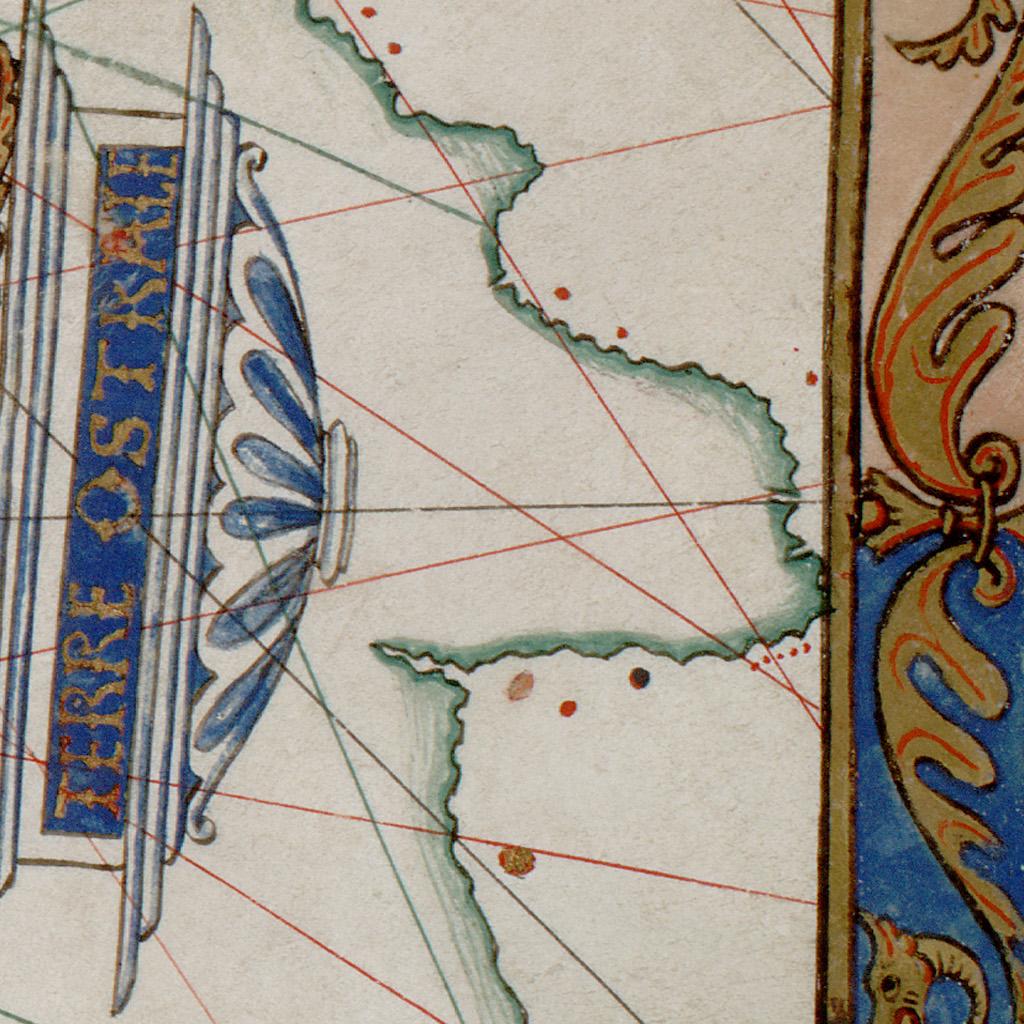 TERRE OSTRALE